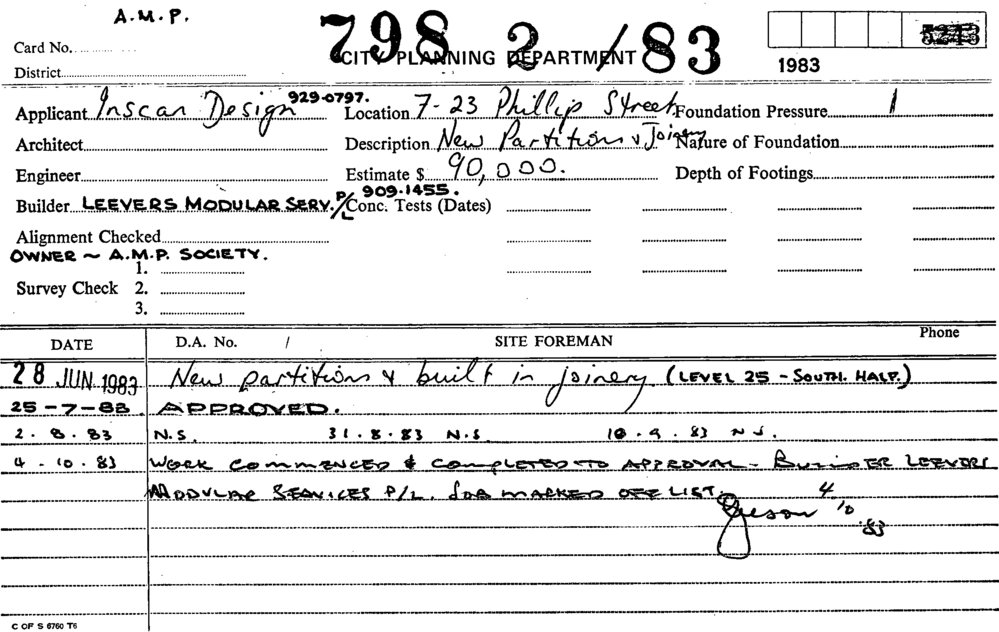 A.M.P.
798 2/83
5243
Card No.
CITY PLANNING DEPARTMENT
1983
District
Applicant Inscan Design 929-0797. Location 7-23 Phillip Street Foundation Pressure
Architect Description New Partitions & Joinery Nature of Foundation
Engineer Estimate $ 90,000. Depth of Footings
Builder LEEVERS MODULAR SERV. P/L 909-1455. Conc. Tests (Dates)
Alignment Checked
OWNER ~ A.M.P. SOCIETY.
1.
Survey Check 2.
3.
DATE D.A. No. / SITE FOREMAN Phone
28 JUN 1983 New partitions & built in joinery (LEVEL 25 - SOUTH. HALF.)
25-7-83 APPROVED.
2.8.83 N.S. 31.8.83 N.S. 10.9.83 N.S.
4.10.83 WORK COMMENCED & COMPLETED TO APPROVAL - BUILDER LEEVERS
MODULAR SERVICES P/L. JOB MARKED OFF LIST. 4
10
83
C OF S 6760 T6